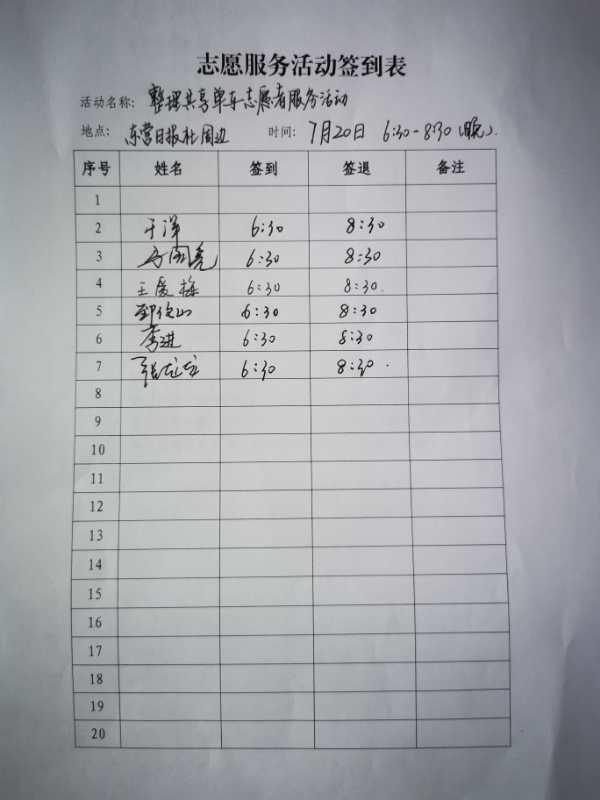 志愿服务活动签到表
活动名称: 整理共享单车志愿者服务活动
地点: 东营日报社周边 时间: 7月20日 6:30-8:30(晚).
序号 姓名 签到 签退 备注
1
2 于洋 6:30 8:30
3 6:30 8:30
4 王爱梅 6:30 8:30.
5 6:30 8:30
6 李进 6:30 8:30
7 张 6:30 8:30.
8
9
10
11
12
13
14
15
16
17
18
19
20